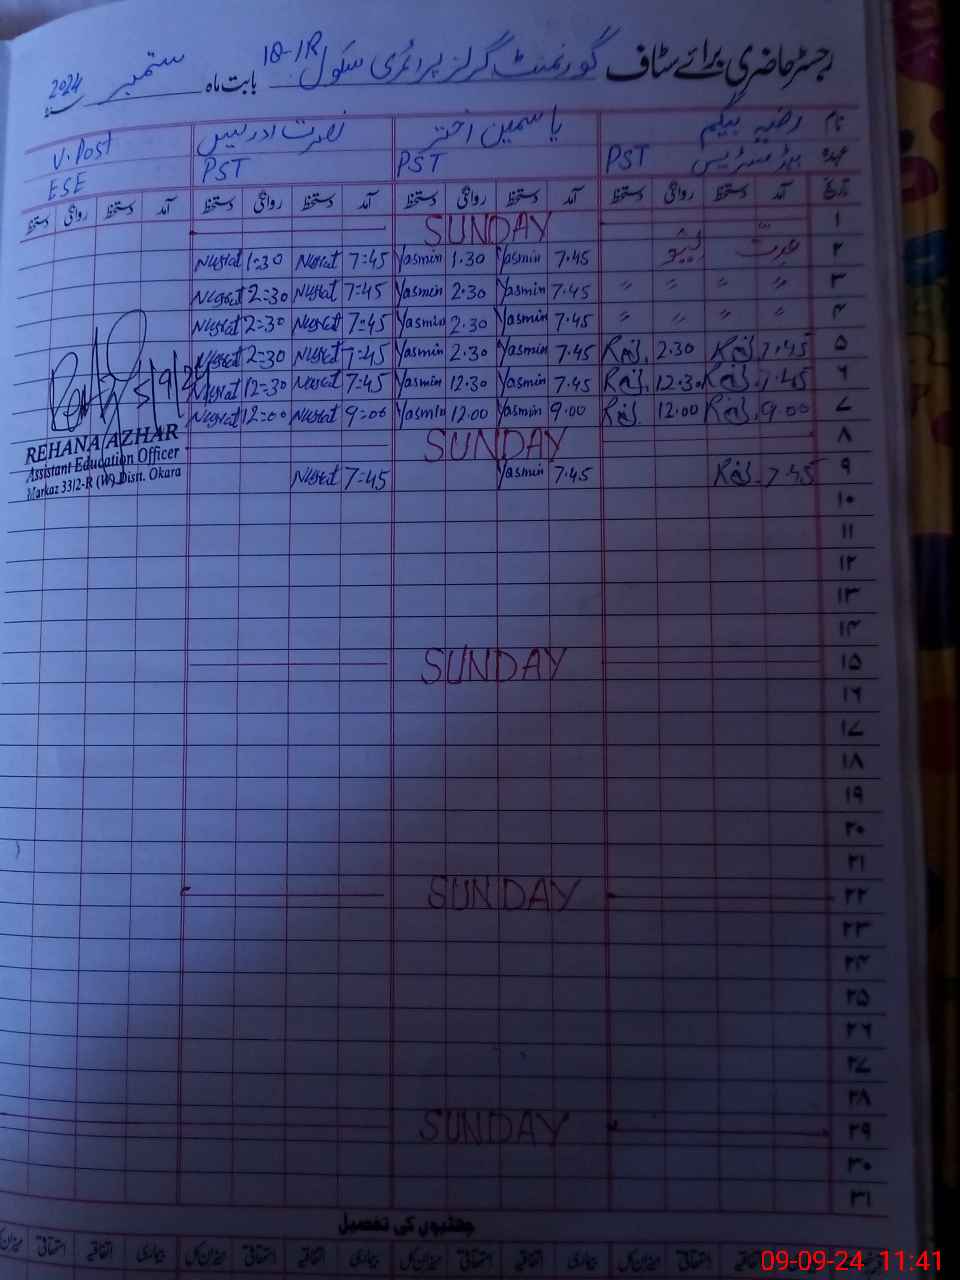 رجسٹر حاضری برائے سٹاف گورنمنٹ گرلز پرائمری سکول 18-1R بابت ماہ ستمبر 2024
نام رضیہ بیگم یاسمین اختر نصرت ادریس V. Post
عہدہ ہیڈ مسٹریس PST PST PST ESE
تاریخ آمد دستخط روانگی دستخط آمد دستخط روانگی دستخط آمد دستخط روانگی دستخط آمد دستخط روانگی دستخط
۱ SUNDAY
۲ 7.45 Yasmin 1.30 Yasmin 7=45 Nusrat 1=30 Nusrat
۳ " " " " 7.45 Yasmin 2.30 Yasmin 7=45 Nusrat 2=30 Nusrat
۴ " " " " 7.45 Yasmin 2.30 Yasmin 7=45 Nusrat 2=30 Nusrat
۵ 7.45 2.30 7.45 Yasmin 2.30 Yasmin 7=45 Nusrat 2=30 Nusrat
۶ 7.45 12.30 7.45 Yasmin 12.30 Yasmin 7=45 Nusrat 12=30 Nusrat
۷ 9.00 12.00 9.00 Yasmin 12.00 Yasmin 9=00 Nusrat 12=00 Nusrat
5/9/24
REHANA AZHAR
Assistant Education Officer
Markaz 33/2-R (W) Distt. Okara
۸ SUNDAY
۹ 7.45 7.45 Yasmin 7=45 Nusrat
۱۰
۱۱
۱۲
۱۳
۱۴
۱۵ SUNDAY
۱۶
۱۷
۱۸
۱۹
۲۰
۲۱
۲۲ SUNDAY
۲۳
۲۴
۲۵
۲۶
۲۷
۲۸
۲۹ SUNDAY
۳۰
۳۱
چھٹیوں کی تفصیل
اتفاقیہ استحقاقی میزان کل بیماری اتفاقیہ استحقاقی میزان کل بیماری اتفاقیہ استحقاقی میزان کل بیماری اتفاقیہ استحقاقی
09-09-24 11:41